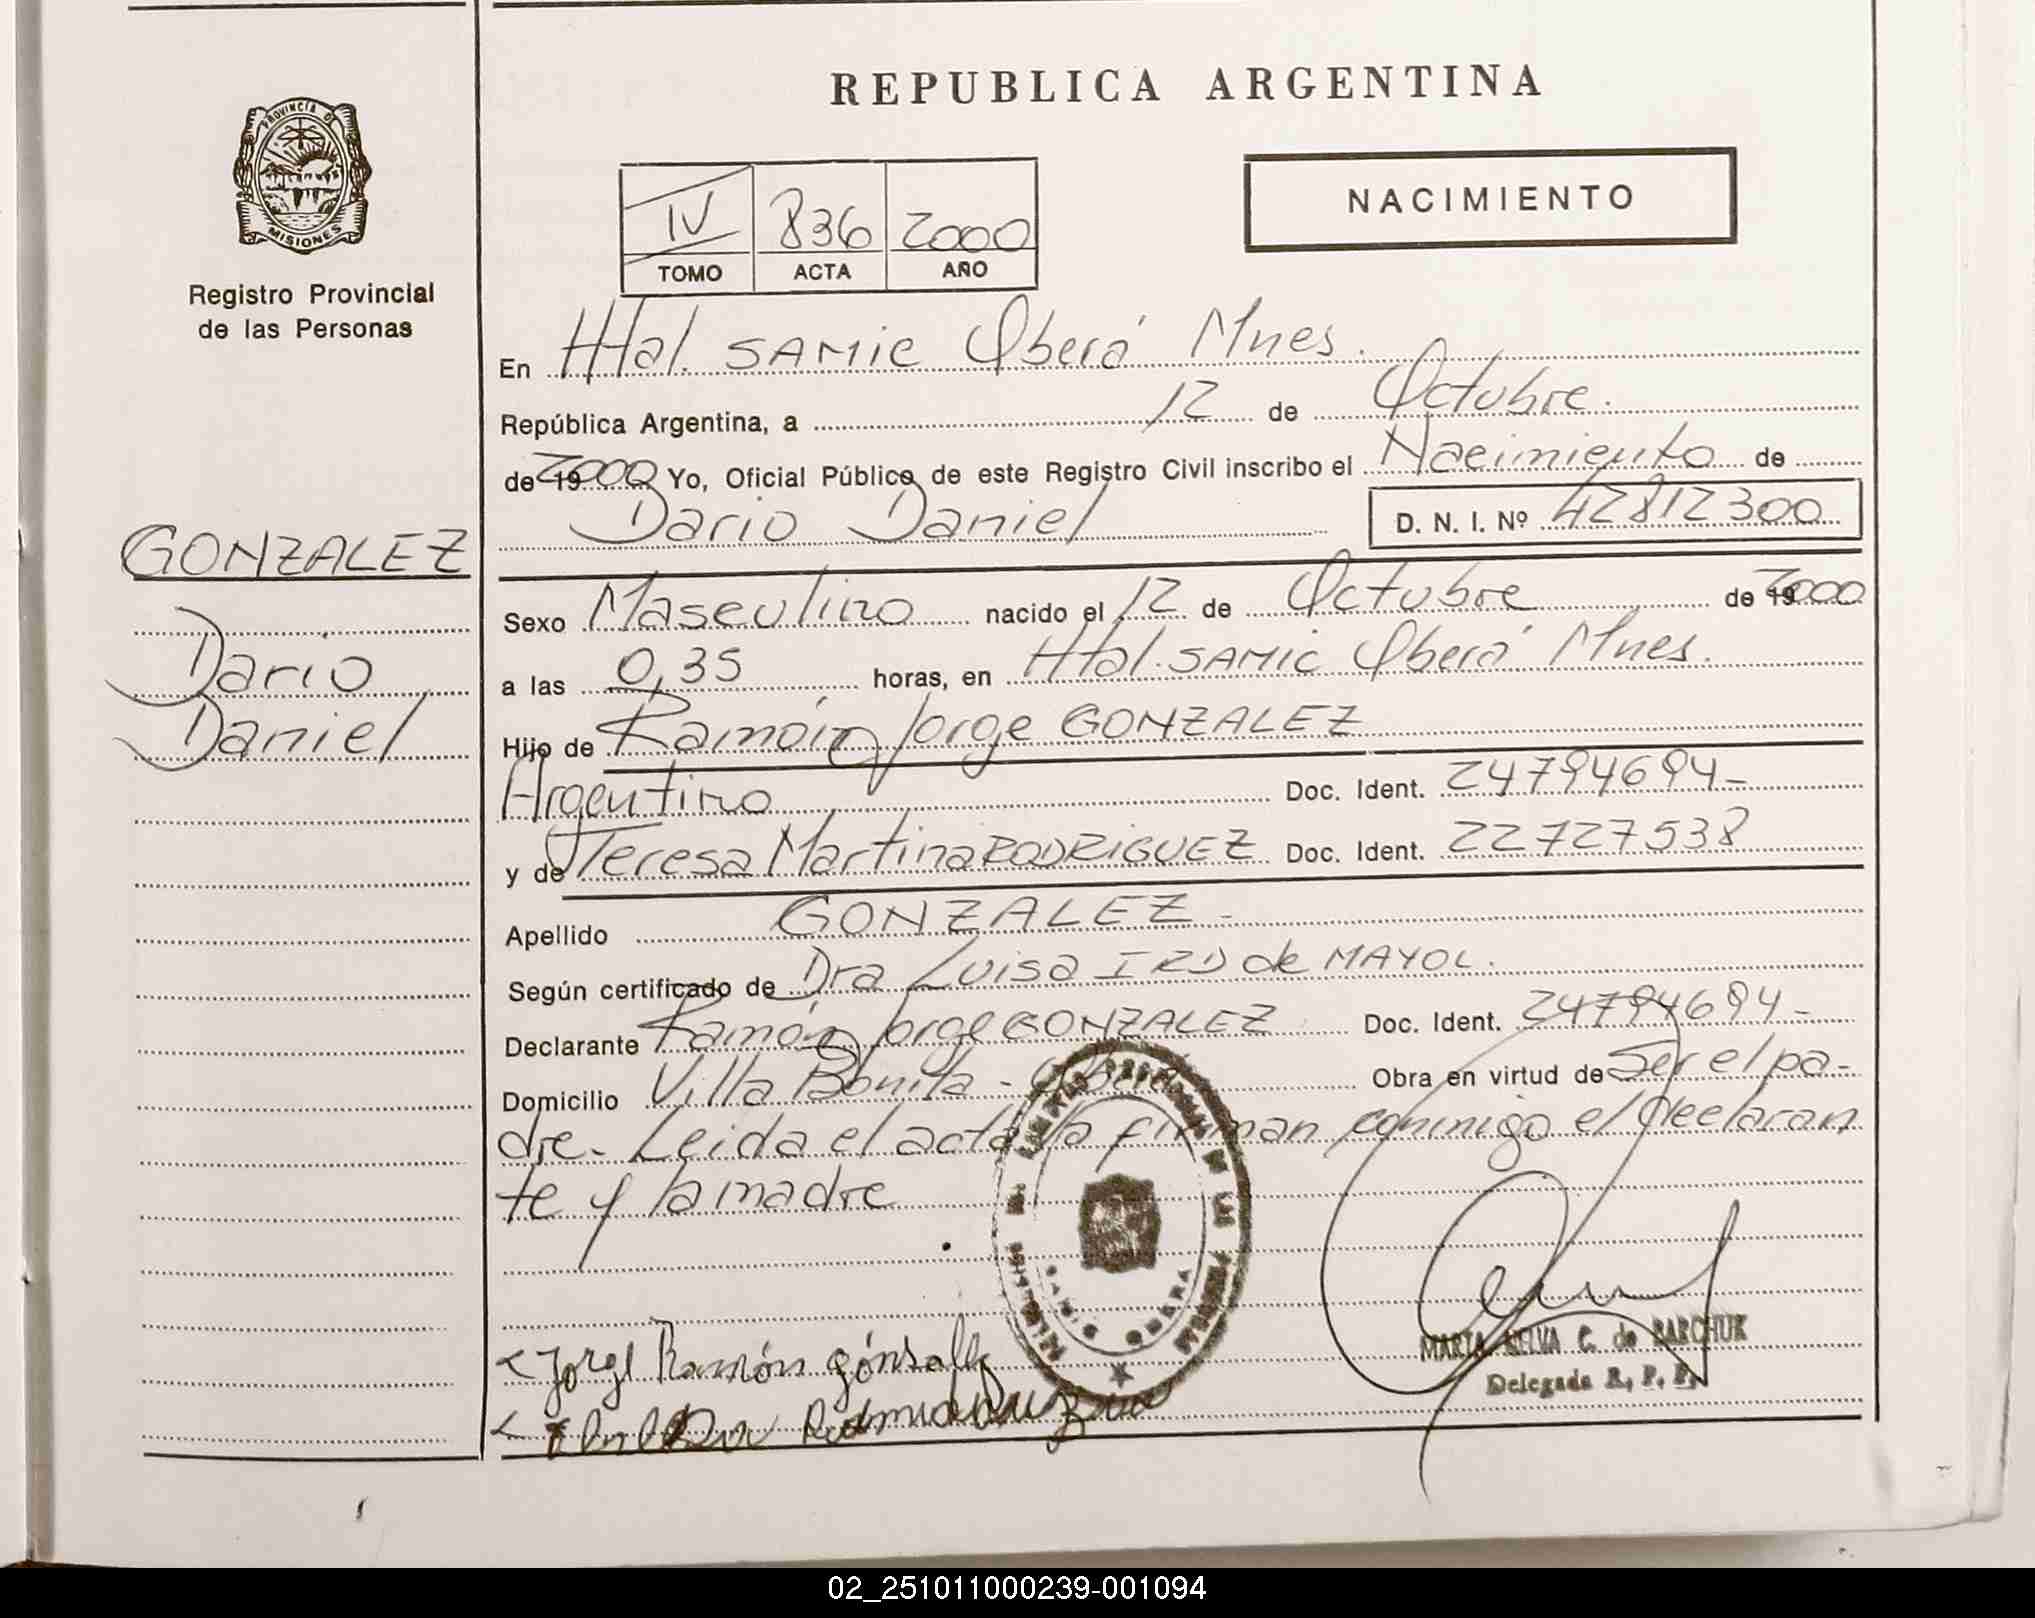 REPUBLICA ARGENTINA
PROVINCIA DE
MISIONES
Registro Provincial
de las Personas
IV 836 2000
TOMO ACTA AÑO
NACIMIENTO
En Htal. SAMIC Oberá Mnes.
República Argentina, a 12 de Octubre.
de 19 2000 Yo, Oficial Público de este Registro Civil inscribo el Nacimiento de
Dario Daniel D. N. I. Nº 42812300
GONZALEZ
Dario
Daniel
Sexo Masculino nacido el 12 de Octubre de 19 2000
a las 0,35 horas, en Htal. SAMIC Oberá Mnes.
Hijo de Ramón Jorge GONZALEZ
Argentino Doc. Ident. 24794694-
y de Teresa Martina RODRIGUEZ Doc. Ident. 22727538
Apellido GONZALEZ-
Según certificado de Dra Luisa de MAYOL.
Declarante Ramón Jorge GONZALEZ Doc. Ident. 24794694-
Domicilio Villa Bonita - Oberá Obra en virtud de Ser el pa-
dre. Leida el acta la firman conmigo el declaran
te y la madre
Jorge Ramón
MARTA SELVA C. de BARCHUK
Delegada R. P. P.
02_251011000239-001094